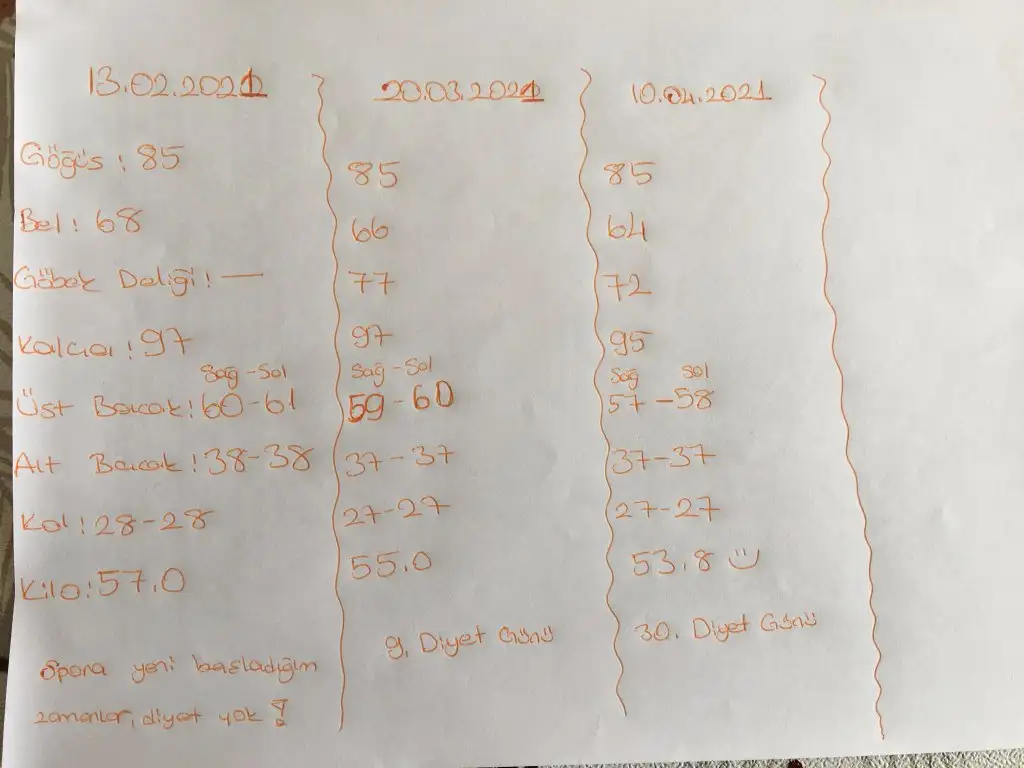 13.02.2021
Göğüs : 85
Bel : 68
Göbek Deliği : —
Kalça : 97
Sağ - Sol
Üst Bacak : 60 - 61
Alt Bacak : 38 - 38
Kol : 28 - 28
Kilo : 57.0
Spora yeni başladığım
zamanlar, diyet yok !
20.03.2021
85
66
77
97
Sağ - Sol
59 - 60
37 - 37
27 - 27
55.0
9. Diyet Günü
10.04.2021
85
64
72
95
Sağ Sol
57 - 58
37 - 37
27 - 27
53.8
30. Diyet Günü